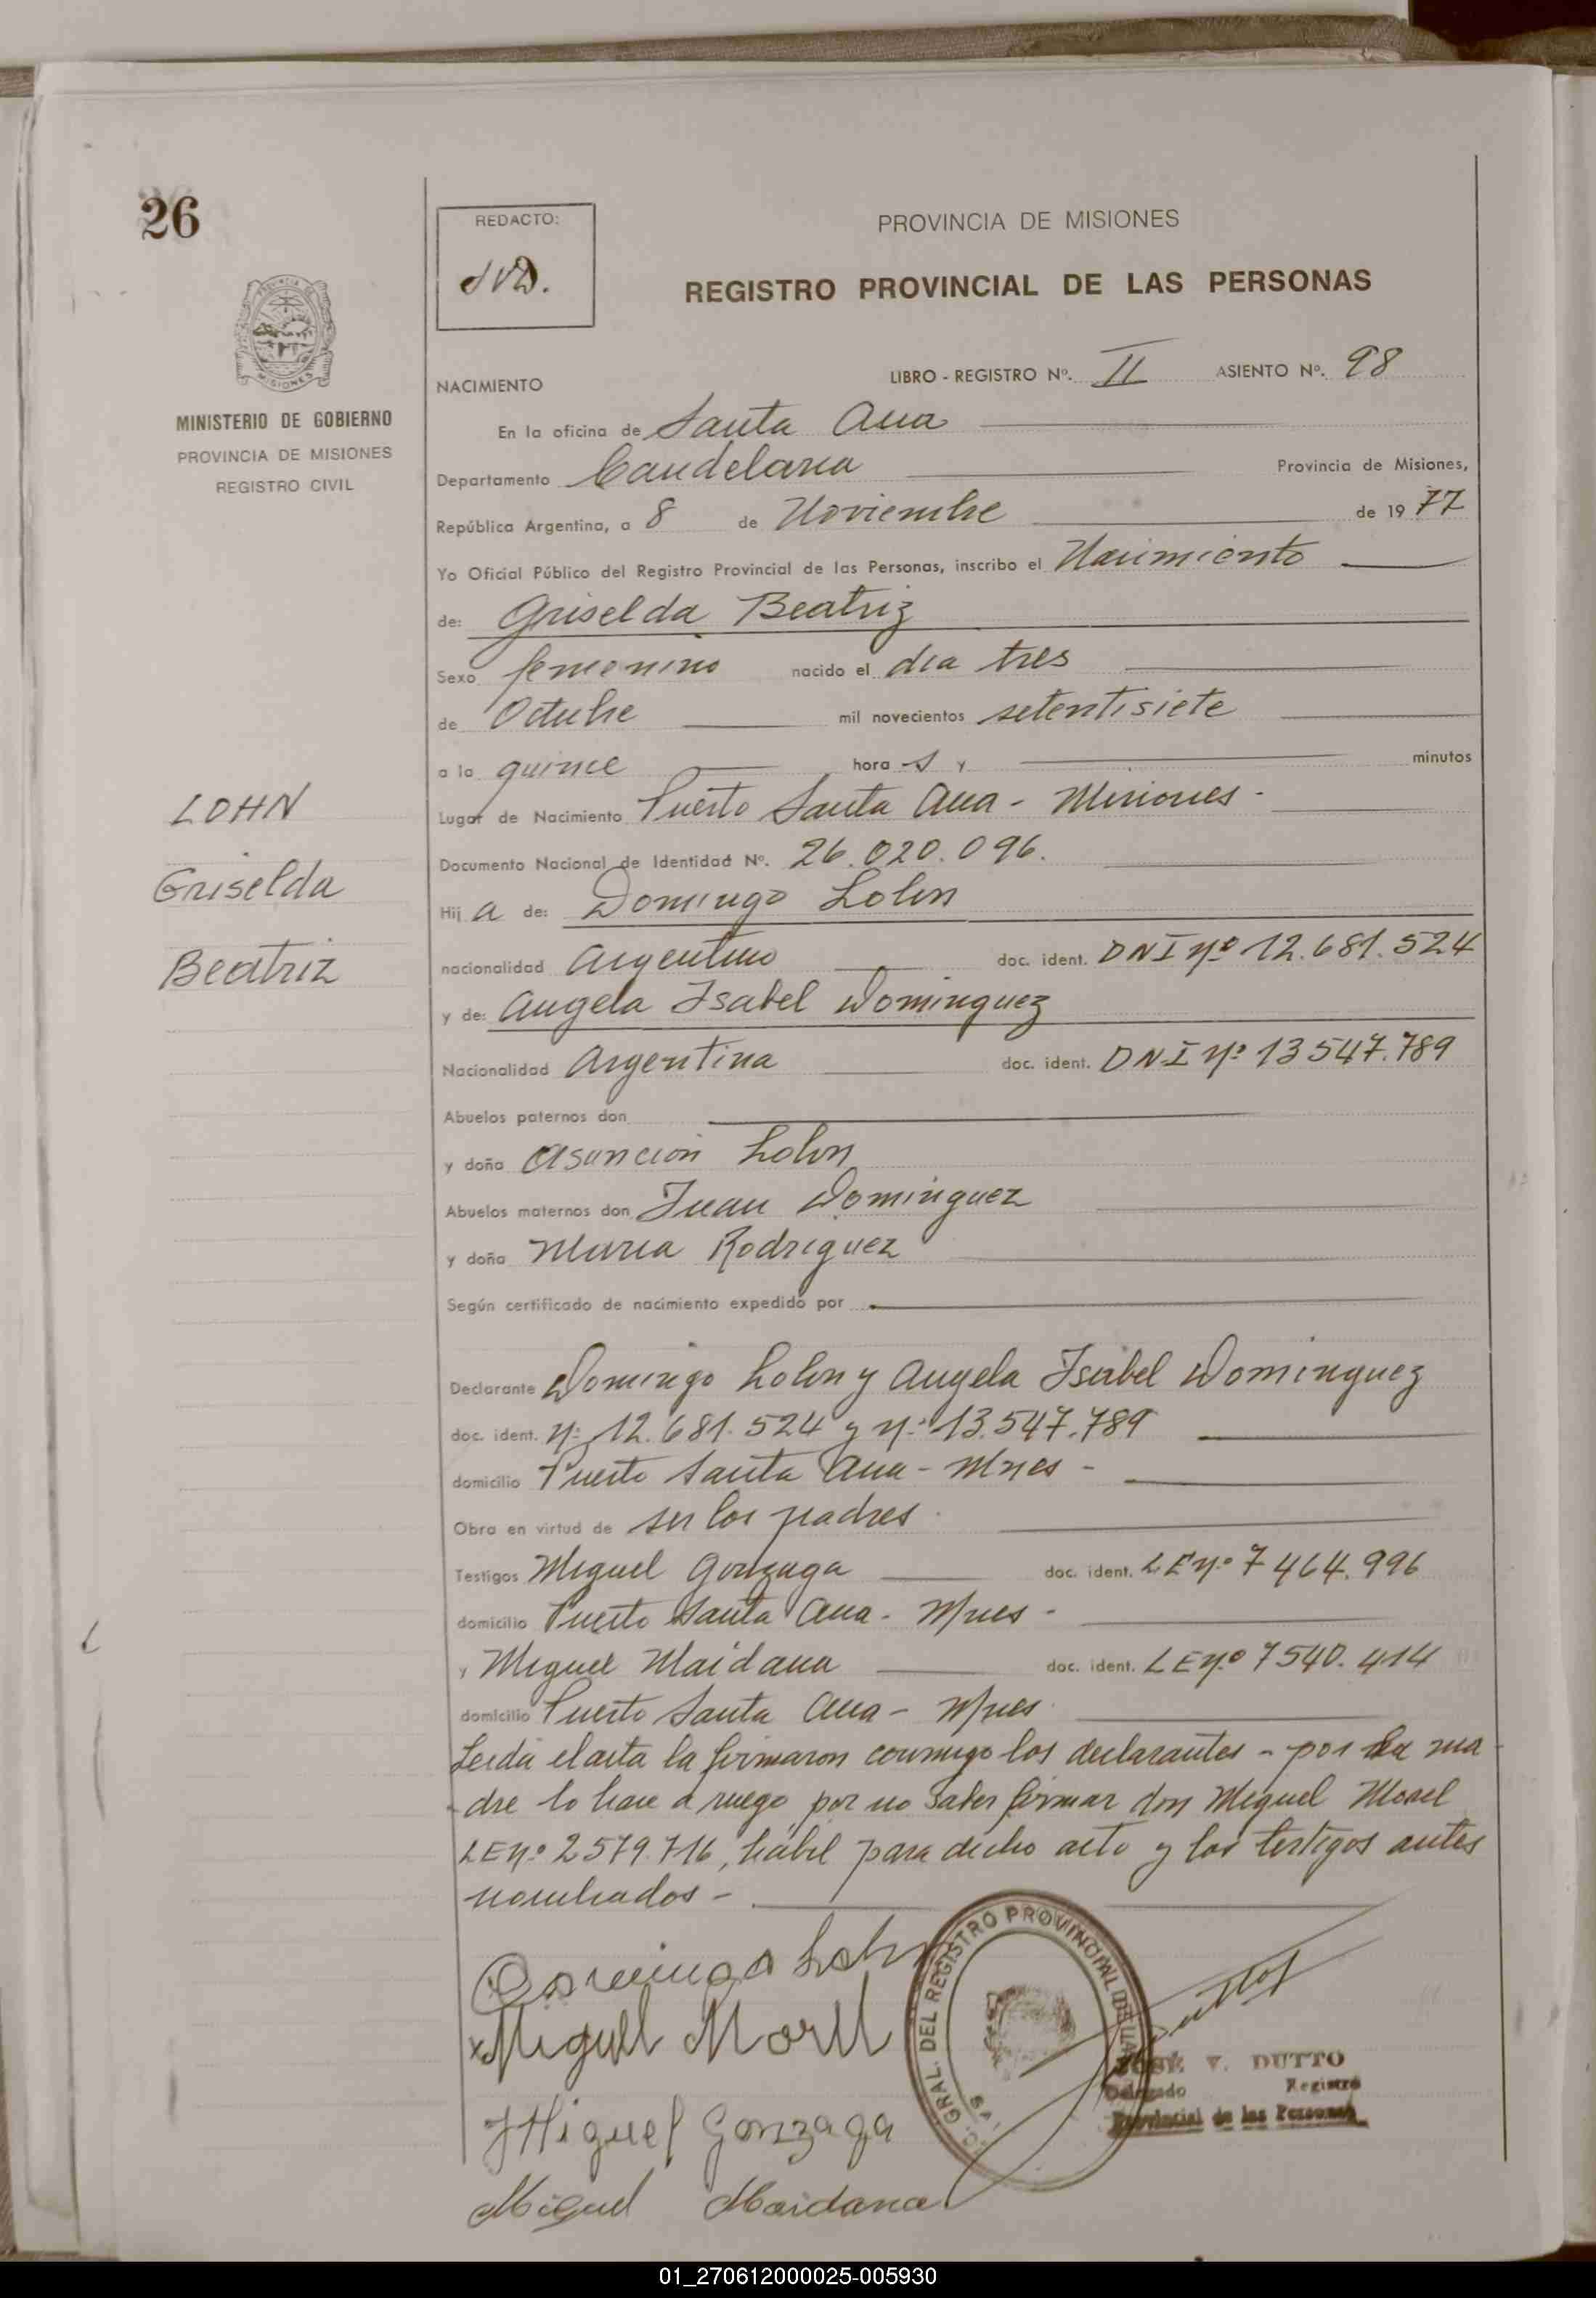 26
REDACTO:
JVD.
PROVINCIA DE MISIONES
REGISTRO PROVINCIAL DE LAS PERSONAS
MINISTERIO DE GOBIERNO
PROVINCIA DE MISIONES
REGISTRO CIVIL
NACIMIENTO LIBRO - REGISTRO Nº. II ASIENTO Nº. 98
En la oficina de Santa Ana
Departamento Candelaria Provincia de Misiones,
República Argentina, a 8 de Noviembre de 1977
Yo Oficial Público del Registro Provincial de las Personas, inscribo el Nacimiento
de: Griselda Beatriz
Sexo femenino nacido el dia tres
de Octubre mil novecientos setentisiete
a la quince hora s y minutos
LOHN
Griselda
Beatriz
Lugar de Nacimiento Puerto Santa Ana - Misiones -
Documento Nacional de Identidad Nº. 26.020.096.
Hij a de: Domingo Lohn
nacionalidad Argentino doc. ident. DNI Nº 12.681.524
y de: Angela Isabel Dominguez
Nacionalidad Argentina doc. ident. DN-I Nº 13547.789
Abuelos paternos don
y doña Asuncion Lohn
Abuelos maternos don Juan Dominguez
y doña Maria Rodriguez
Según certificado de nacimiento expedido por
Declarante Domingo Lohn y Angela Isabel Dominguez
doc. ident. Nº 12.681.524 y Nº 13.547.789
domicilio Puerto Santa Ana - Mnes -
Obra en virtud de ser los padres.
Testigos Miguel Gonzaga doc. ident. LE Nº 7464.996
domicilio Puerto Santa Ana - Mnes -
y Miguel Maidana doc. ident. LE Nº 7540.414
domicilio Puerto Santa Ana - Mnes.
Leida el acta la firmaron conmigo los declarantes - por la ma
dre lo hace a ruego por no saber firmar don Miguel Morel
LE Nº 2579.716, hábil para dicho acto y los testigos antes
nombrados -
Domingo Lohn
Miguel Morel
GRAL. DEL REGISTRO PROVINCIAL DE LAS
JOSÉ V. DUTTO
Delegado Registro
Provincial de las Personas
Miguel Gonzaga
Miguel Maidana
01_270612000025-005930